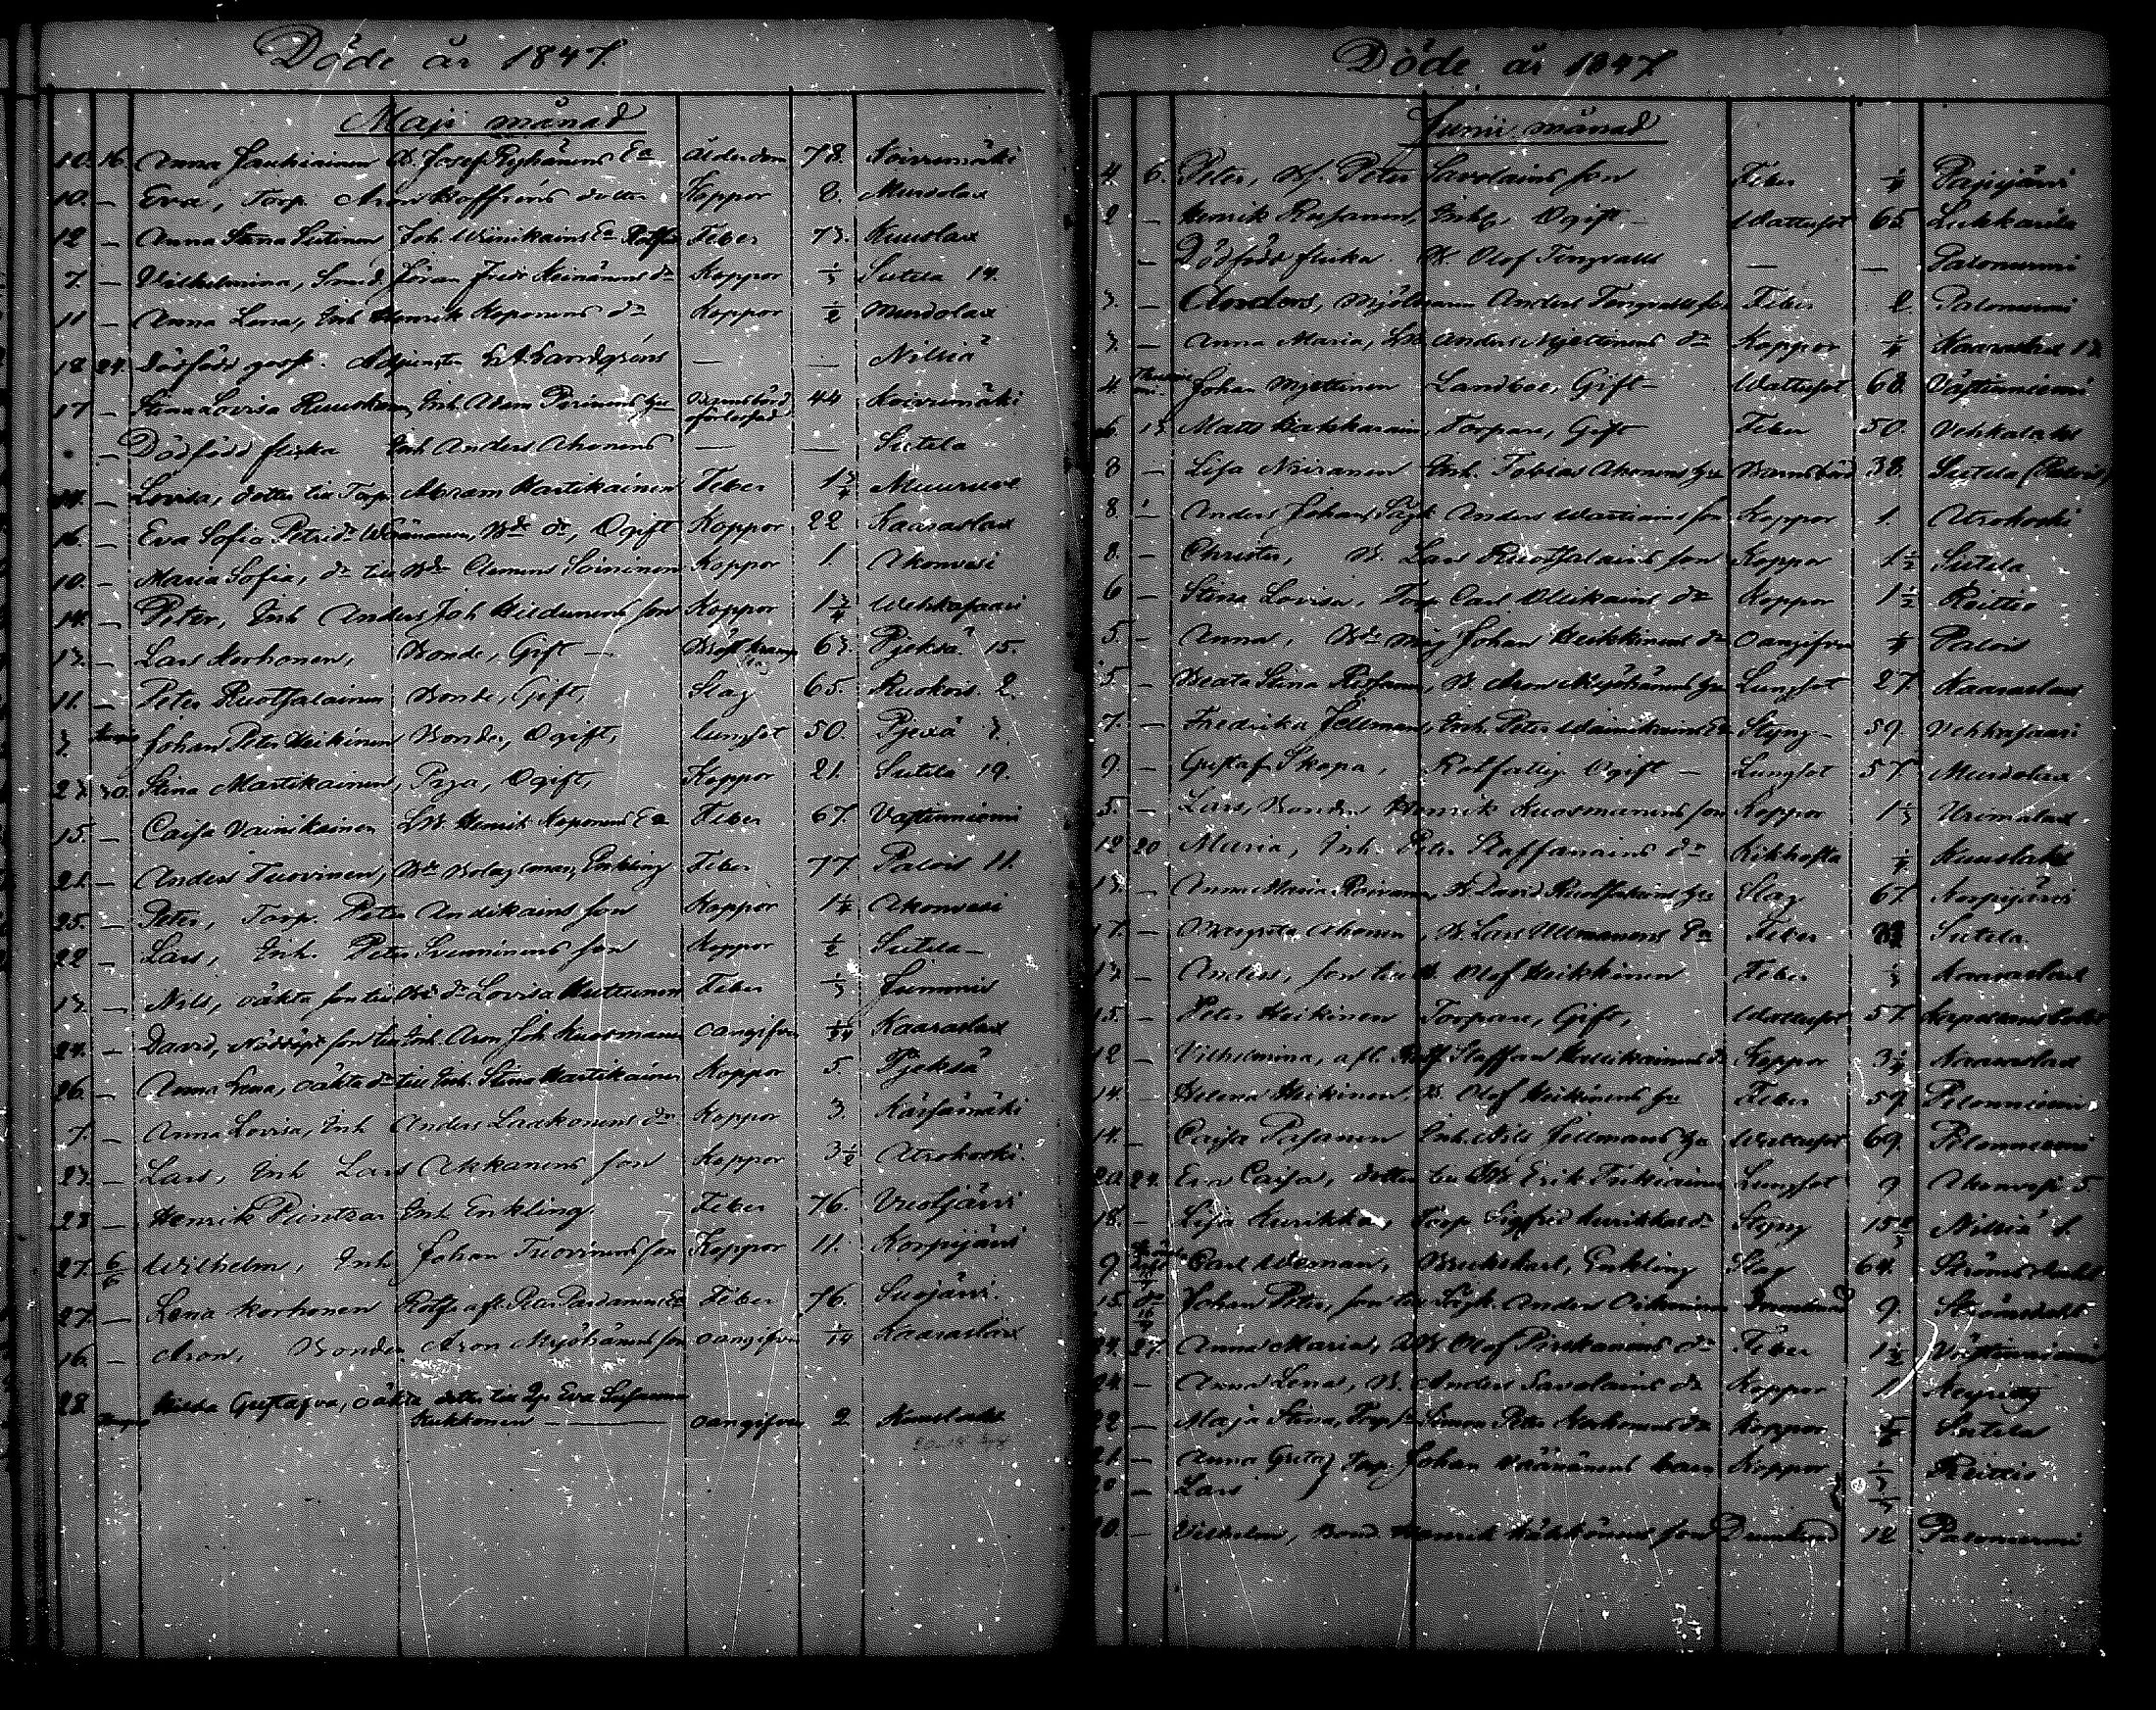 Döde år 1847.
Maji månad
10. 16. Anna Jauhiainen B. Josef Ryhänens Ea ålderdom 78. Koivumäki
10. — Eva, Torp. Aron Boffréns dotter Koppor 8. Murdolax
12 — Anna Stina Sutinen Joh. Winikains Ea Feber 73. Kuuslax
7. — Vilhelmina, Smed. Göran Fredr Heinänens dr Koppor 1/3 Sutela 14.
11 — Anna Lena, Inh Henrik Koponens dr Koppor 1/2 Murdolax
18 24. Dödfödd goss. Adjuncten Landgréns — — Nilsiä
17 — Stina Lovisa Ruuskanen, Inh. Adam Pirinens hu Barnsbörd 44 Koivumäki
— Dödfödd flicka Inh Anders Ahonens — — Sutela
14. — Lovisa, dotter till Torp. Abram Kartikainen Feber 1 3/4 Muuruvex
16. — Eva Sofia Petridr Väänänen, Bde dr, Ogift Koppor 22 Kaaraslax
10. — Maria Sofia, dr till Bdn Clemens Soininen Koppor 1. Akonvesi
14. — Peter, Inh Anders Joh Hildunens son Koppor 1 3/4 Wehkasaari
13. — Lars Korhonen, Bonde, Gift — Bröst kramp 63. Pjeksä 15.
11. — Peter Ruotsalainen Bonde, Gift, Slag 65. Kuokois. 2.
3. Johan Peter Heikinen Bonde, Ogift, lungsot 50. Pjexä 3.
23. 30. Stina Martikainen, Piga, Ogift, Koppor 21. Sutela 19.
15. — Caisa Vainikainen LB. Henrik Koponens Ea Feber 67. Västinniemi
21. — Anders Tuovinen, Bde Bolagsman, Enkling Feber 77 Palois 11.
25. — Peter, Torp. Peter Andikains son Koppor 1 1/4 Akonvesi
22 — Lars, Inh. Peter son Koppor 1/2 Sutela —
13. — Nils, oäkta son till Bde dr Lovisa Huttunen Feber 1/3 Juminis
24. — David, Nöddöpt son till Inh. Aron Joh Kuosmanen oangifven 1/24 Kaaraslax
26. — Anna Lena, oäkta dr till Inh. Stina Kartikainen Koppor 5. Pjeksä
7. — Anna Lovisa, Inh Anders Laakonens dr Koppor 3. Kärsämäki
23. — Lars, Inh Lars Akkanens son Koppor 3 1/2 Atrokoski.
28 — Henrik Rintzar Inh Enkling. Feber 76. Vuotjärvi
27. 6/6 Wilhelm, Inh Johan Tuovinens son Koppor 11. Korpijärvi
27. — Lena Korhonen Feber 76. Suojärvi.
16. — Aron, Bonden Aron Myöhänens son oangifven 1/14 Kaaraslax
28. Gustafva, oäkta dotter till Eva Susanna
Kukkonen — oangifven 2 Kuuslax
Döde år 1847.
Junii månad
4. 6. Peter, B. Peter Savolains son Feber 1/4 Pajujärvi
2 — Henrik Rusanen, Enkl, Ogift — Wattusot 65. Lukkarila
— Dödfödd flicka B. Olof Tengvalls — — Palonurmi
3. — Anders, Mjölnaren Anders Tengvalls son Feber 2. Palonurmi
3. — Anna Maria, LB. Anders Myettinens dr Koppor 1/4 Kaaraslax 12
4 Johan Myettinen Landboe, Gift — Wattusot 68. Västinniemi
6. 13. Matts Kakkarain, Torpare, Gift Feber 50. Vehkalax
8 — Lisa Niiranen Inh. Tobias Ahonens hu Barnsbörd 38. Sutela (Palois)
8 — Anders Johan, Anders Wartiains son Koppor 1. Atrokoski
8. — Christer, B. Lars Ruotsalains son Koppor 1 1/2 Sutela
6 — Stina Lovisa, Torp Carl Ollikains dr Koppor 1 1/2 Reittio
5. — Anna, Johan Heikkinens dr Oangifven 1/4 Palois
5. — Beata Stina, B. Aron Myöhänens hu Lungsot 27. Kaaraslax
7. — Fredrika Jellman, Inh. Peter Wainikains Ea Styng — 59. Vehkasaari
9. — Gustaf Skopa, Rotfattig Ogift — Lungsot 57. Murdolax
5. — Lars, Bonden Henrik Kuosmanens son Koppor 1 1/3 Urimolax
12 20 Maria, Inh. Peter Staffanains dr Kikhosta 1/4 Kuuslaht
13. — Anna Maria Roivanen, B. David Ruotsalains hu Slag 67. Korpijärvi
17. — Margreta Ahonen, B. Lars Ea Feber Sutela.
13. — Anders, son till B. Olof Heikkinen Feber 1/3 Kaaraslax
15. — Peter Heikinen Torpare, Gift, Wattusot 57.
12 — Vilhelmina, afl. Staffan dr Koppor 3 1/4 Kaaraslax
14. — Helena Heikinen, B. Olof Heikinens hu Feber 59. Pelonniemi
14. — Caisa Pasanen Inh. Nils Jellmans hu Wattusot 69. Pelonniemi
20. 24. Eva Caisa, dotter till Erik Lungsot 9 Akonvesi 5.
18. — Lisa Kurikka, Torp. Sigfrid Kurikkas dr Styng Nilsiä 1.
9. Carl Weman, Brukskarl, Enkling Slag 64. Strömsdahl
15. Johan Peter, son till Anders 9. Strömsdahl
24. 27. Anna Maria, Olof Pirskanens dr Feber 1 1/2 Västinniemi
24. — Anna Lena, B. Anders Savolains dr Koppor 11
22 — Maja Stina, Simon Peter Korhonens dr Koppor Sutela
21 — Anna Greta } Torp. Johan Väänänens barn Koppor 1/3 Reittio
20 — Lars 1/3
20. — Vilhelm, Bond. Henrik son 12 Palonurmi